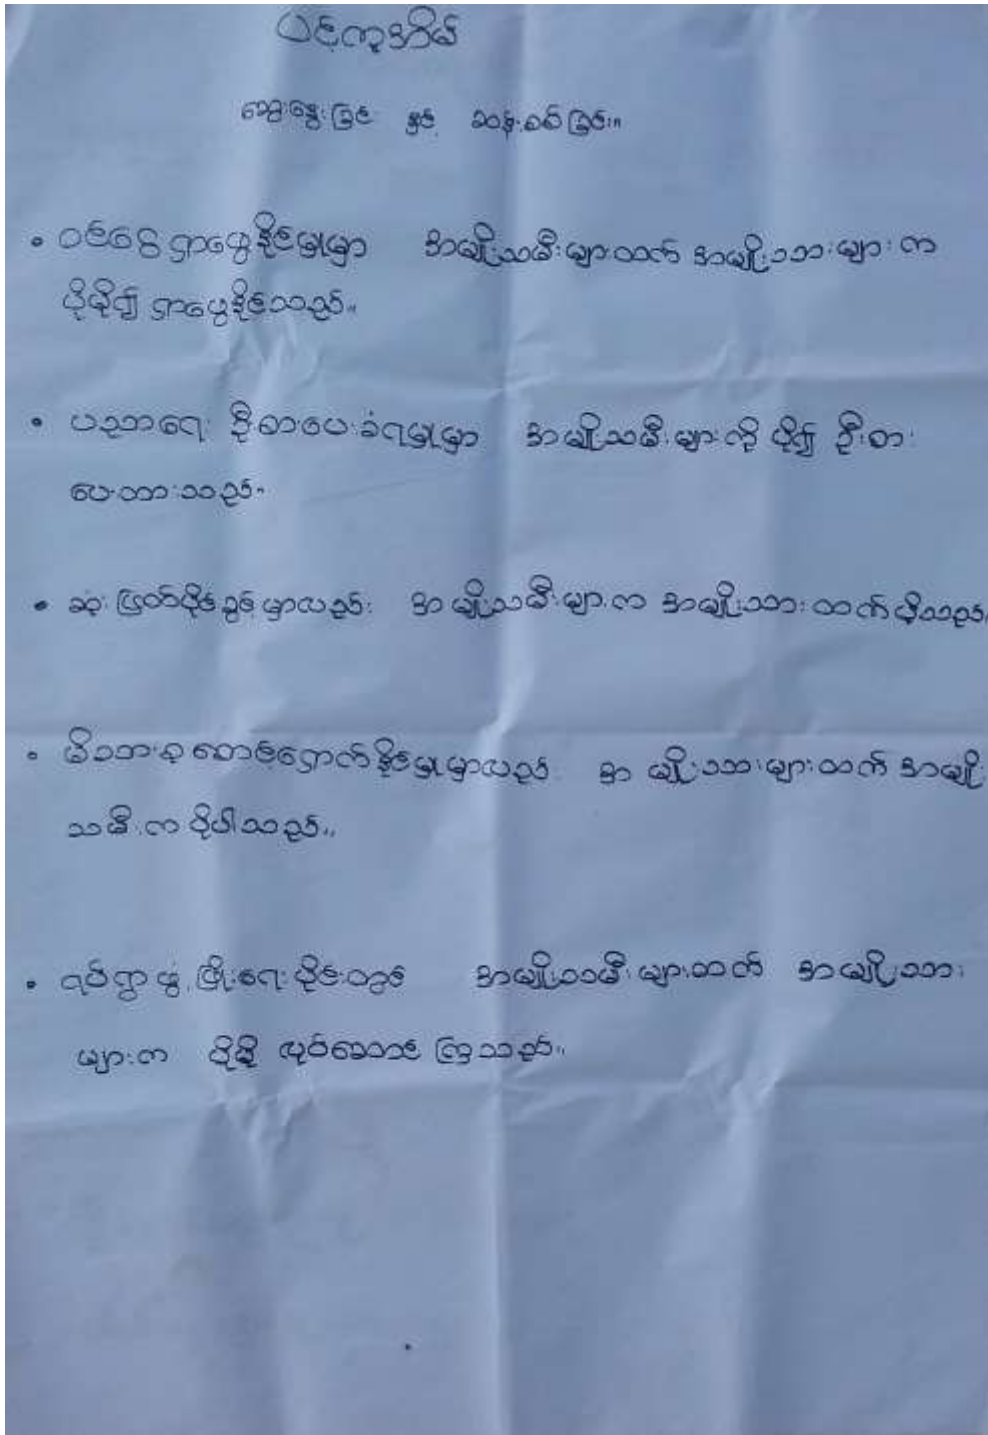 ပင့်ကူအိမ်
ဆွေးနွေးခြင်း နှင့် ဆန်းစစ်ခြင်း။
• ဝင်ငွေ ရှာဖွေနိုင်မှုမှာ အမျိုးသမီးများထက် အမျိုးသားများက
ပိုမို၍ ရှာဖွေနိုင်သည်။
• ပညာရေး ဦးစားပေးခံရမှုမှာ အမျိုးသမီးများကို ပို၍ ဦးစား
ပေးထားသည်။
• ဆုံးဖြတ်ပိုင်ခွင့်မှာလည်း အမျိုးသမီးများက အမျိုးသားထက်ပိုသည်။
• မိသားစု စောင့်ရှောက်နိုင်မှုမှာလည်း အမျိုးသားများထက် အမျိုး
သမီးက ပိုပါသည်။
• ရပ်ရွာဖွံ့ဖြိုးရေးပိုင်းတွင် အမျိုးသမီးများထက် အမျိုးသား
များက ပိုမို လုပ်ဆောင်ကြသည်။